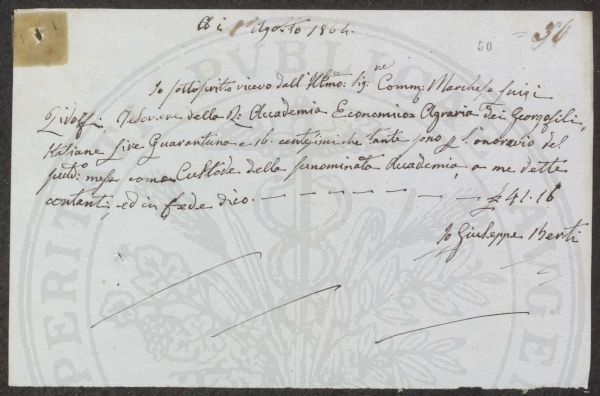 A dì Agosto 1864.
50 = 36
Io sottoscritto ricevo dall'Illmo: Sig.re Comm: Marchese Luigi
Ridolfi, Tesoriere della R: Accademia Economico=Agraria dei Georgofili,
Italiane Lire Quarantuna e 16. centesimi che tante sono p l'onorario del
sudd:o mese come Custode della sunominata Accademia, a me dette
contanti, ed in fede dico. — — — — — — — £ 41.16
Io Giuseppe Berti